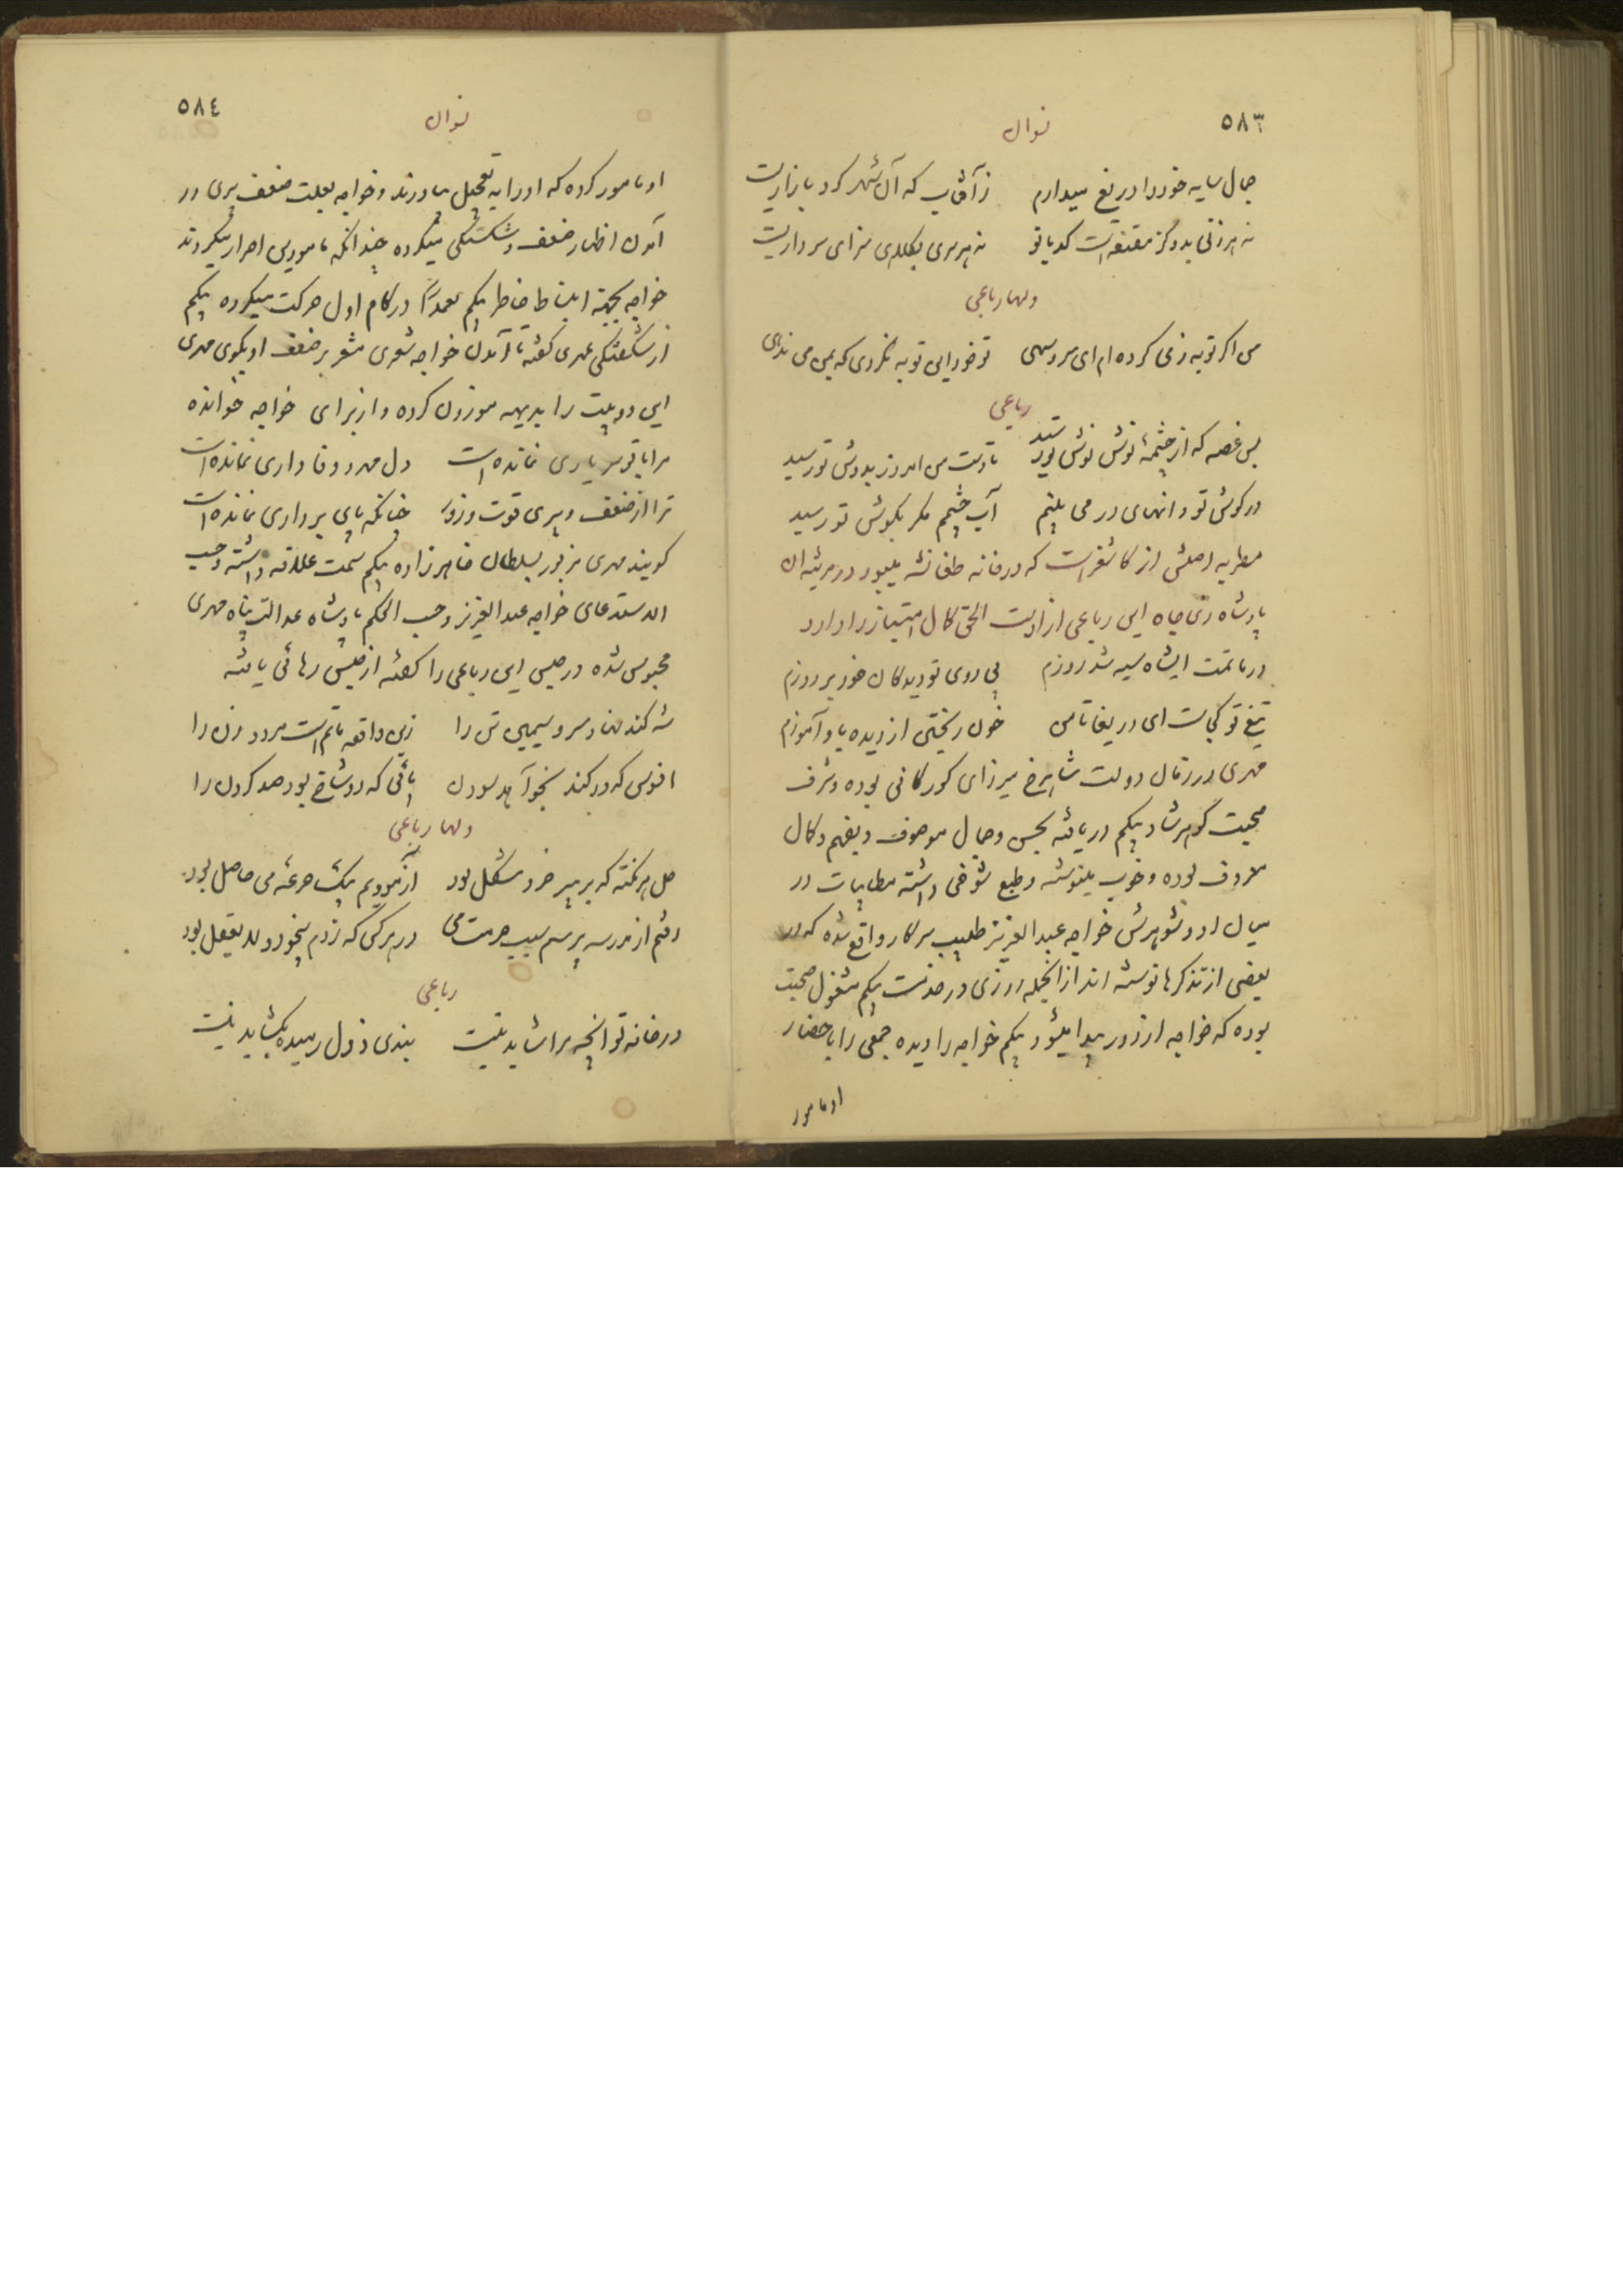 ٥٨٣
نسوان
جمال سایه خود را دریغ میدارم ز آفتاب که آن شهر گرد بازاریست
نه هر زنی بدو گز مقنعه است کدبانو نه هر سری بکلاهی سزای سرداریست
ولها رباعی
من اگر توبه ز می کرده ام ای سرو سهی تو خود این توبه نکردی که بمن می ندهی
رباعی
بس غصه که از چشمهٔ نوش تو رسید تا دست من امروز بدوش تو رسید
در گوش تو دانهای در می بینم آب چشمم مگر بگوش تو رسید
مطربه اصلش از کاشغر است که در خانه طغانشه میبود در مرثیه آن
پادشاه ذی جاه این رباعی از اوست الحق کمال امتیاز را دارد
در ماتمت ایشاه سیه شد روزم بی روی تو دیدگان خود بر دوزم
تیغ تو کجاست ای دریغا تا من خون ریختن از دیده باو آموزم
مهری در زمان دولت شاهرخ میرزای گورکانی بوده و شرف
صحبت گوهرشاد بیگم دریافته بحسن و جمال موصوف و بفهم و کمال
معروف بوده و خوب مینوشته و طبع شوخی داشته مطایبات در
میان او و شوهرش خواجه عبدالعزیز طبیب سرکار واقع شده که در
بعضی از تذکرها نوشته اند از انجمله روزی در خدمت بیگم مشغول صحبت
بوده که خواجه از دور پیدا میشود بیگم خواجه را دیده جمعی را باحضار
او مامور
٥٨٤
نسوان
او مامور کرده که او را به تعجیل بیاورند و خواجه بعلت ضعف پیری در
آمدن اظهار ضعف و شکستگی میکرده چندانکه مامورین اصرار میکردند
خواجه بجهة انبساط خاطر بیگم عمداً در گام اول حرکت میکرده بیگم
از شگفتگی مهری گفته تا آمدن خواجه شعری مشعر بر ضعف او بگوی مهری
این دو بیت را بدیهه موزون کرده و از برای خواجه خوانده
مرا با تو سر یاری نمانده است دل مهر و وفا داری نمانده است
ترا از ضعف و پیری قوت و زور چنانکه پای برداری نمانده است
گویند مهری مزبور بسلطان خاهرزاده بیگم سمت علاقه داشته و حسب
الاستدعای خواجه عبدالعزیز و حسب الحکم پادشاه عدالت پناه مهری
محبوس شده در حبس این رباعی را گفته از حبس رهائی یافته
شه کند نهاد سرو سیمین تن را زین واقعه ماتم است مرد و زن را
افسوس که در کند بخواهد سودن پائی که دو شاخ بود صد گردن را
ولها رباعی
حل هر نکته که بر پیر خرد مشکل بود آزمودیم بیک جرعهٔ می حاصل بود
رفتم از مدرسه پرسم سبب حرمت می در هر کس که زدم بیخود و لا یعقل بود
رباعی
در خانه تو آنچه مرا شاید نیست بندی ز دل رمیده بگشاید نیست